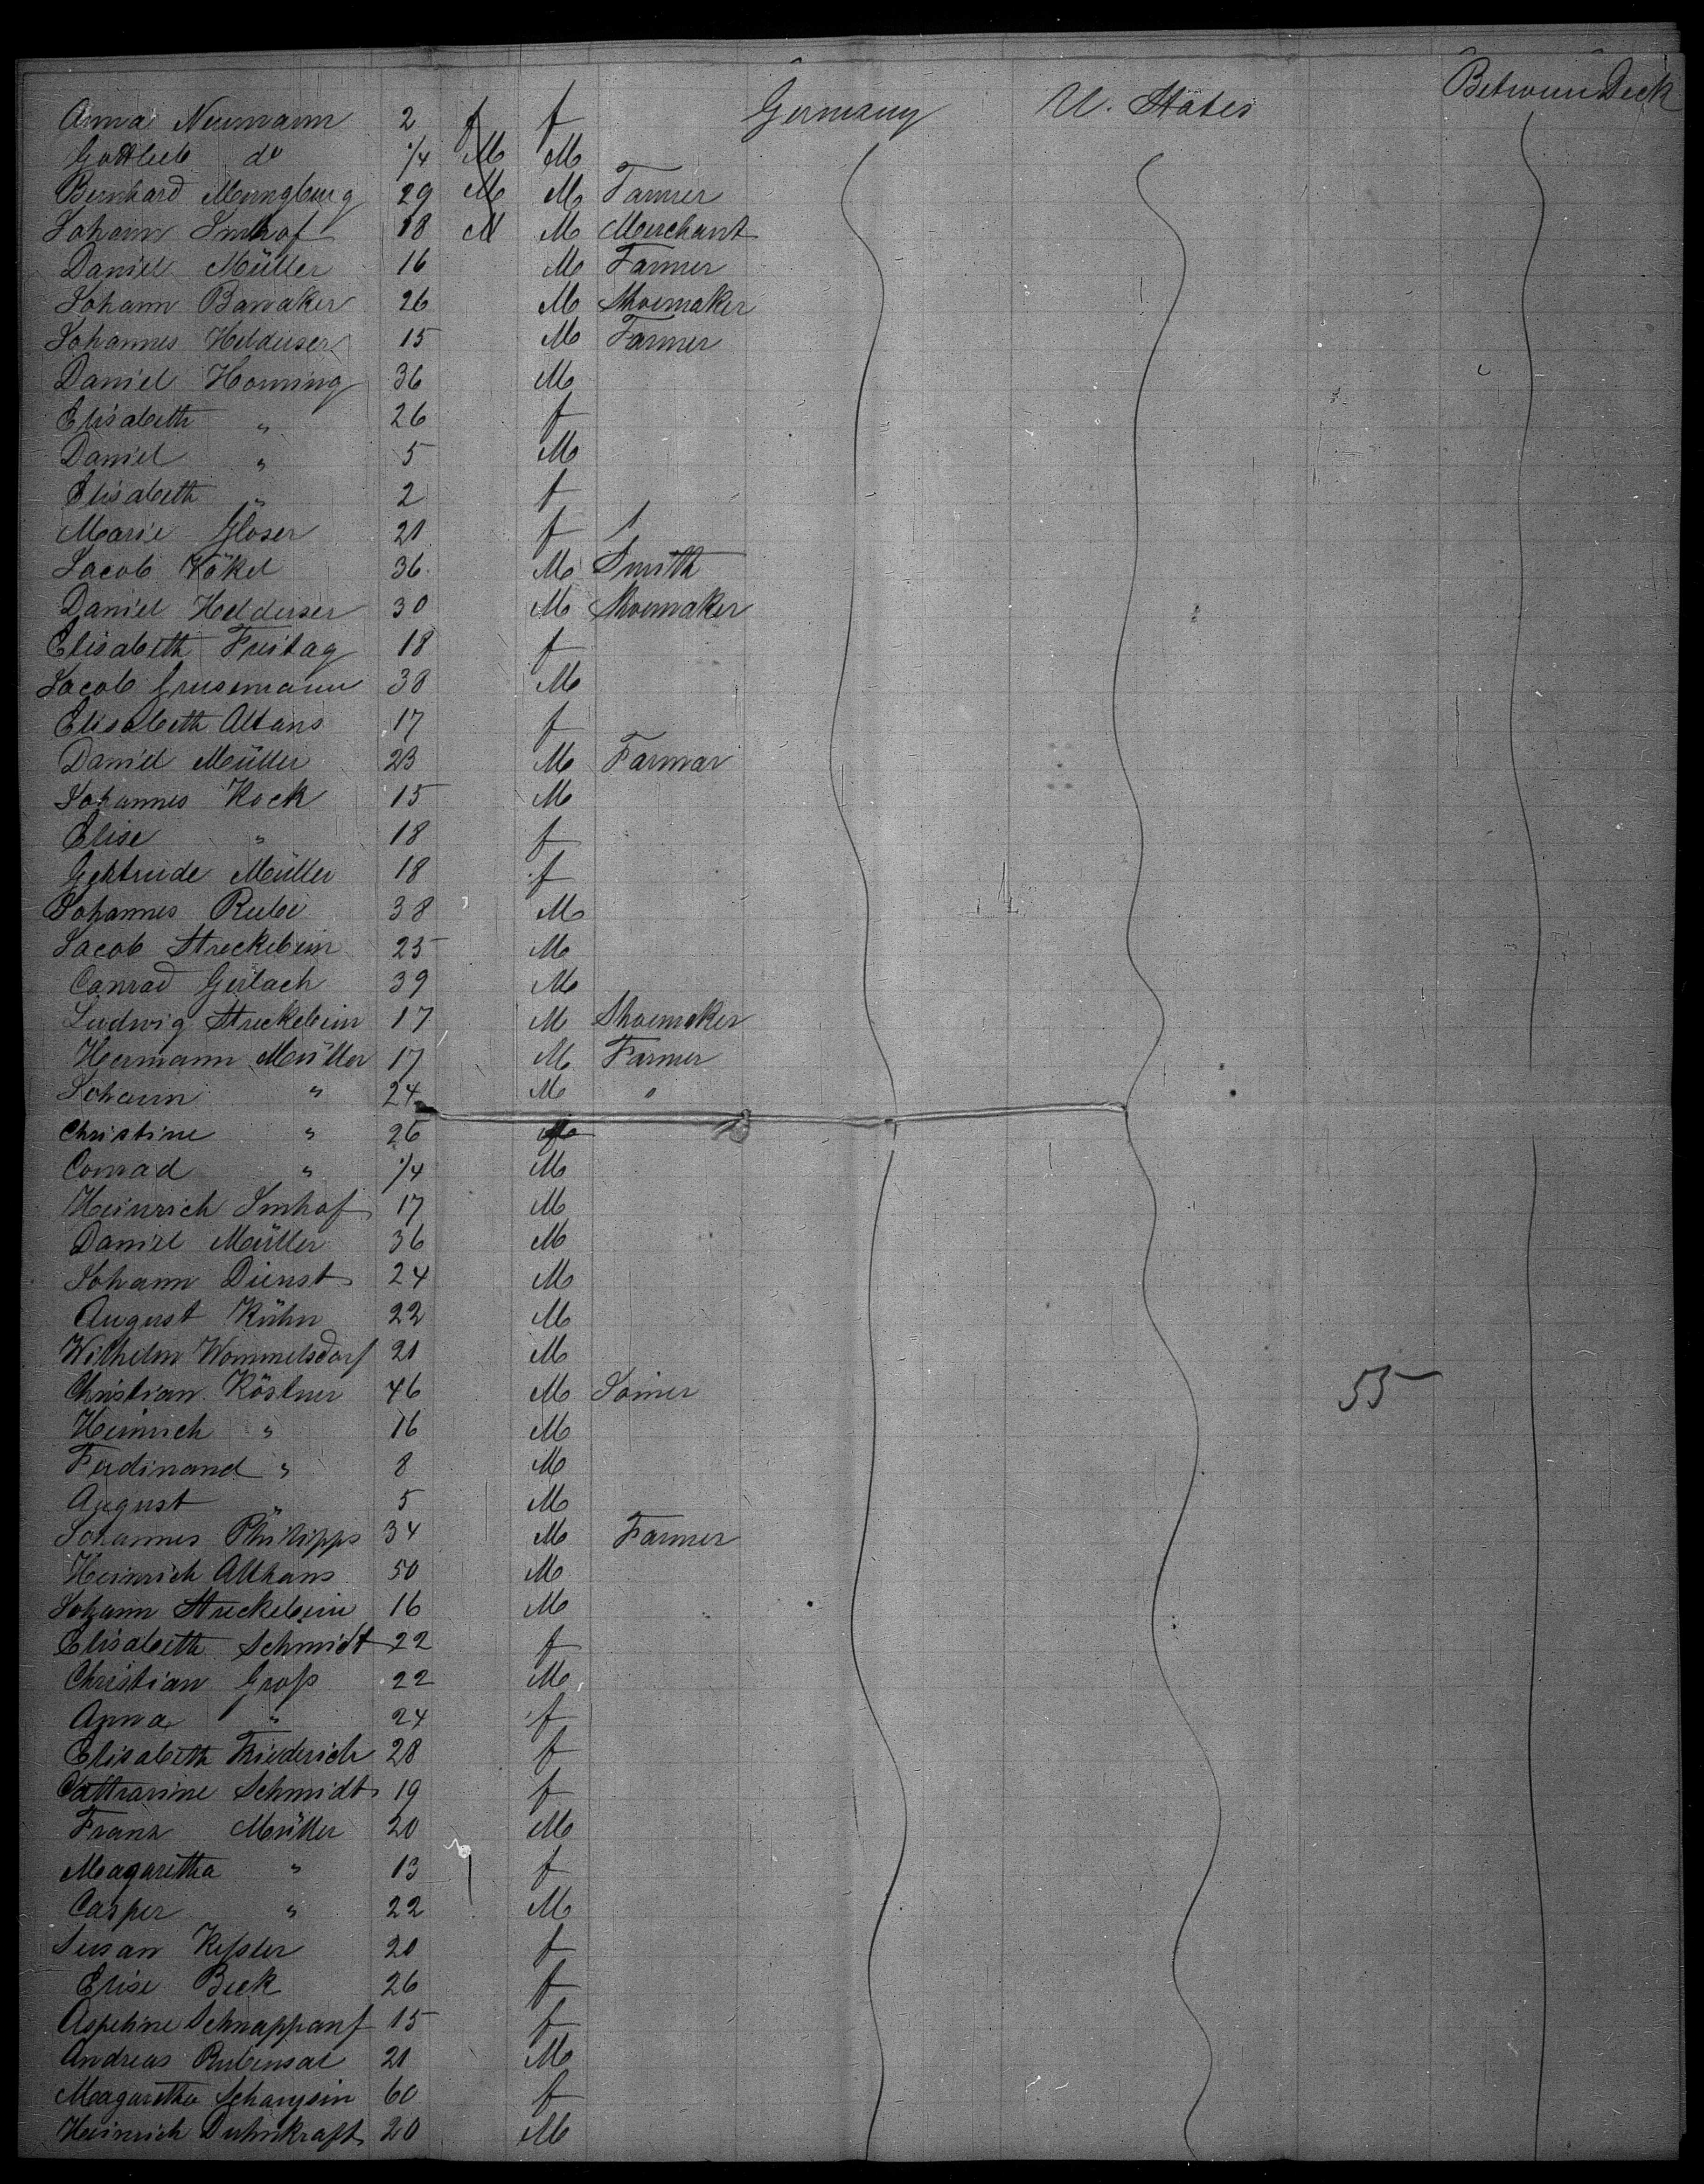 Anna Neumann 2 f f Germany U. States Between Deck
Gottlieb do 1/4 M M
Bernhard Mungburg 29 M M Farmer
Johann Imhof 18 M M Merchant
Daniel Müller 16 M Farmer
Johann Banaker 26 M Shoemaker
Johannes Heldieser 15 M Farmer
Daniel Horning 36 M
Elisabeth " 26 f
Daniel " 5 M
Elisabeth " 2 f
Marie Gloser 21 f
Jacob Kökel 36 M Smith
Daniel Heldieser 30 M Shoemaker
Elisabeth Freitag 18 f
Jacob 38 M
Elisabeth Altans 17 f
Daniel Müller 23 M Farmar
Johannes Kock 15 M
Elise " 18 f
Gertrude Müller 18 f
Johannes Rube 38 M
Jacob Streckebein 25 M
Conrad Gerlach 39 M
Ludwig Streckebein 17 M Shoemaker
Hermann Müller 17 M Farmer
Johann " 24 M "
Christine " 26 f
Conrad " 1/4 M
Heinrich Imhof 17 M
Daniel Müller 36 M
Johann Dienst 24 M
August Kühn 22 M
Wilhelm Wommelsdorf 21 M
Christian Köstner 46 M Joiner 55
Heinrich " 16 M
Ferdinand " 8 M
August " 5 M
Johannes Philipps 34 M Farmer
Heinrich Althans 50 M
Johann Streckebein 16 M
Elisabeth Schmidt 22 f
Christian Groß 22 M
Anna " 24 f
Elisabeth Friederich 28 f
Cathrarine Schmidt 19 f
Franz Müller 20 M
Magaretha " 13 f
Casper " 22 M
Susan Keßler 20 f
Elise Beck 26 f
Schnappauf 15 f
Andreas Rubensal 21 M
Magaretha 60 f
Heinrich Duhnkraft 20 M